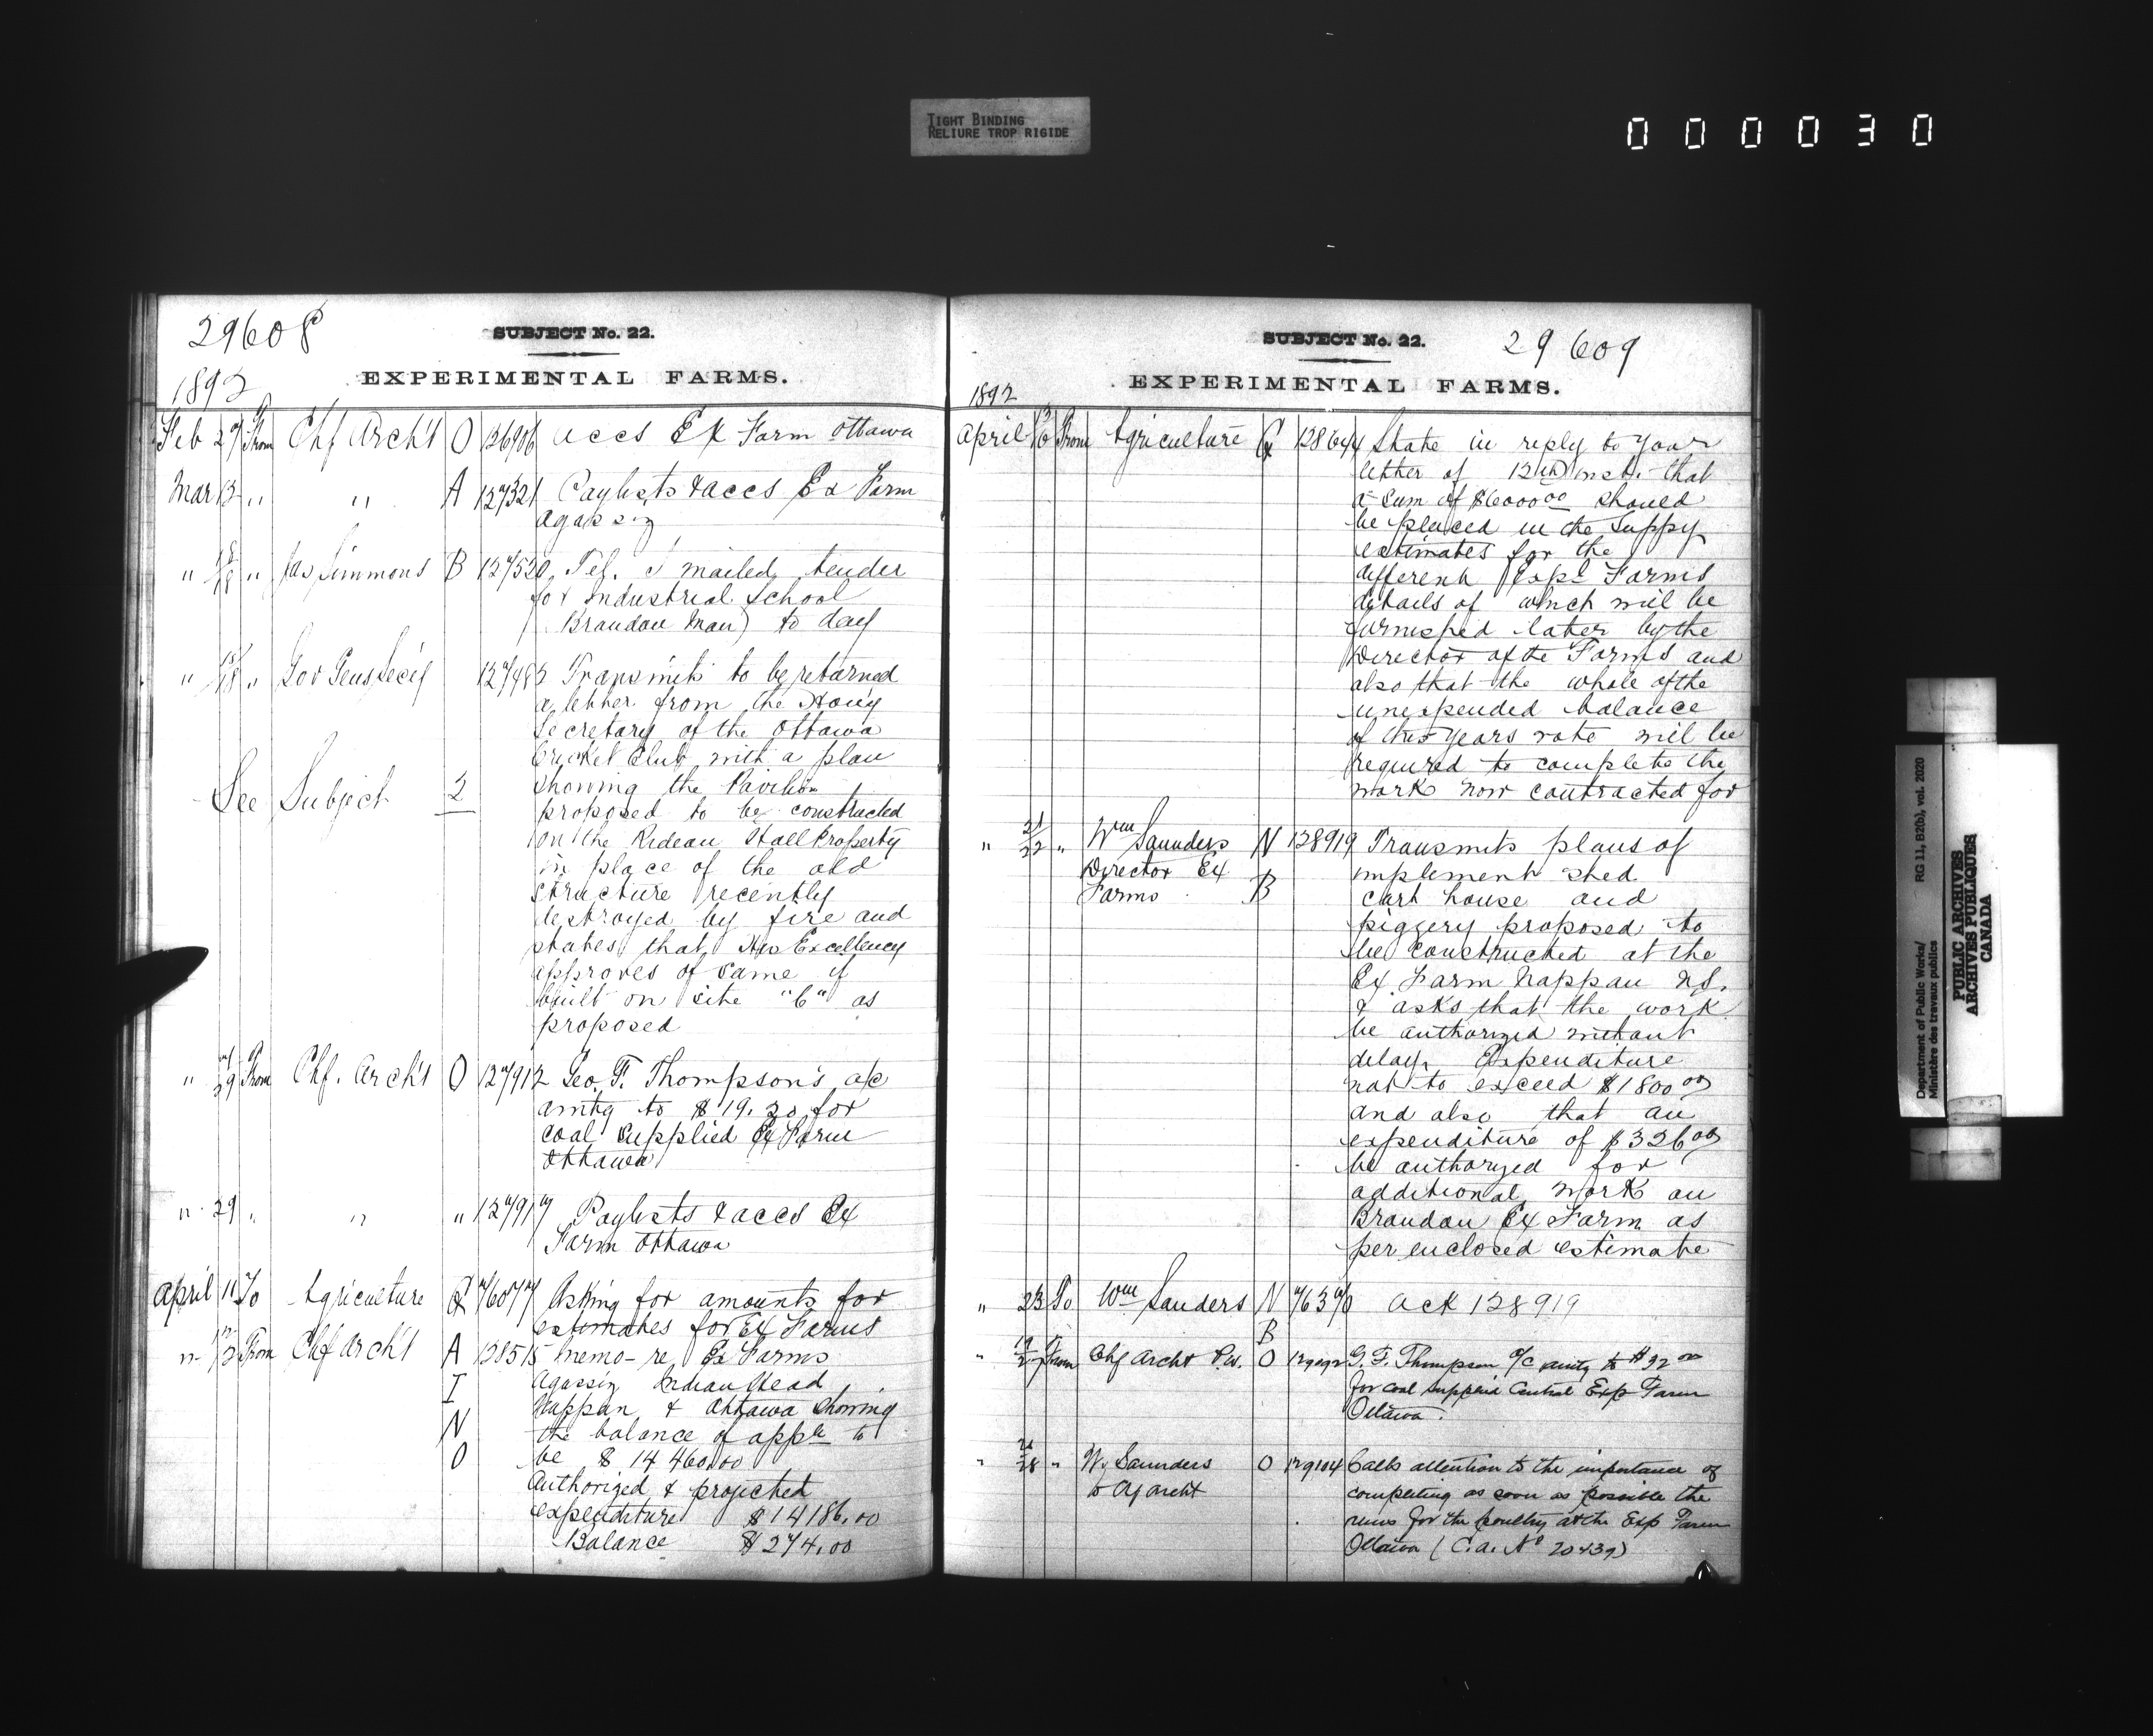 TIGHT BINDING
RELIURE TROP RIGIDE
000030
29608
SUBJECT No. 22.
EXPERIMENTAL FARMS.
1892
Feb 27 From Chf Arch't O 126906 accs Ex Farm Ottawa
Mar 12 " " A 127321 Paylists & accs Ex Farm
Agassiz
" 18 " Jas Simmons B 127520 Tel. I mailed tender
for Industrial School
Brandon Man) to day
" 18 " Gov Gens Secy 127482 Transmits to be returned
a letter from the Hon'y
Secretary of the Ottawa
Cricket Club with a plan
See Subject 2 showing the Pavilion
proposed to be constructed
on the Rideau Hall Property
in place of the old
structure recently
destroyed by fire and
states that His Excellency
approves of same if
built on site "C" as
proposed
" 29 From Chf. Arch't O 127912 Geo. F. Thompson's a/c
amtg to $19.20 for
coal supplied Ex Farm
Ottawa
" 29 " " " 127917 Paylists & accs Ex
Farm Ottawa
April 11 To Agriculture G 76077 Asking for amounts for
estimates for Ex Farms
" 12 From Chf Arch't A 128515 memo - re Ex Farms
I Agassiz Indian Head
N Nappan & Ottawa showing
the balance of appn to
O be $14460.00
Authorized & projected
expenditure $14186.00
Balance $274.00
SUBJECT No. 22.
29609
EXPERIMENTAL FARMS.
1892
April From Agriculture G 128644 State in reply to your
letter of 12th inst. that
a sum of $6000.00 should
be placed in the Suppy
estimates for the
different Expl Farms
details of which will be
furnished later by the
Director of the Farms and
also that the whole of the
unexpended balance
of this years vote will be
required to complete the
work now contracted for
" 21/22 " Wm Saunders N 128919 Transmits plans of
Director Ex implement shed
Farms B cart house and
piggery proposed to
be constructed at the
Ex Farm Nappan N.S.
& asks that the work
be authorized without
delay. Expenditure
not to exceed $1800.00
and also that an
expenditure of $326.00
be authorized for
additional work on
Brandon Ex Farm as
per enclosed estimate
" 23 To Wm Saunders N 76370 Ack 128919
B
" From Chf Archt P.W. O 129092 G. F. Thompson a/c amtg to $92.00
for coal supplied Central Exp Farm
Ottawa.
" 28 " W. Saunders O 129104 Calls attention to the importance of
to Chf Archt completing as soon as possible the
runs for the poultry at the Exp Farm
Ottawa (C.A. No 20439)
Department of Public Works/ RG 11, B2(b), vol. 2020
Ministère des travaux publics
PUBLIC ARCHIVES
ARCHIVES PUBLIQUES
CANADA